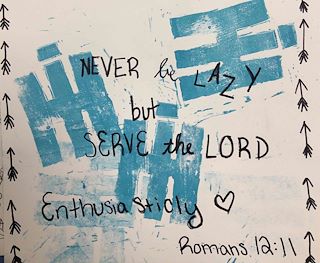 NEVER be LAZY
but
SERVE the LORD
Enthusiasticly ♡
Romans 12:11